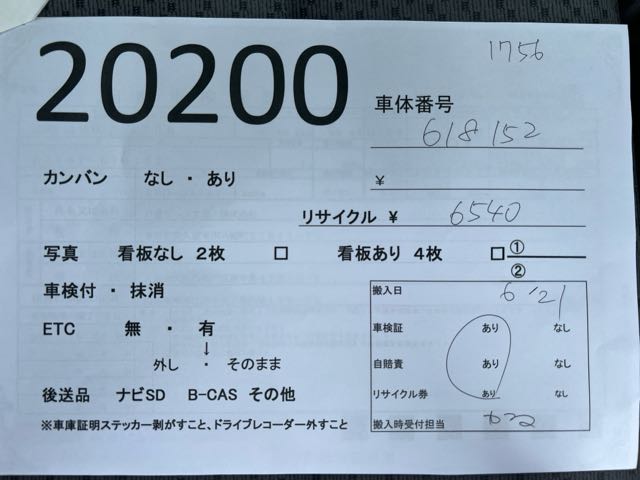 20200
1756
車体番号
618152
カンバン なし ・ あり
¥
リサイクル ¥ 6540
写真 看板なし 2枚 □ 看板あり 4枚 □ ①
②
車検付 ・ 抹消
ETC 無 ・ 有
↓
外し ・ そのまま
後送品 ナビSD B-CAS その他
※車庫証明ステッカー剥がすこと、ドライブレコーダー外すこと
搬入日 6/21
車検証 あり なし
自賠責 あり なし
リサイクル券 あり なし
搬入時受付担当